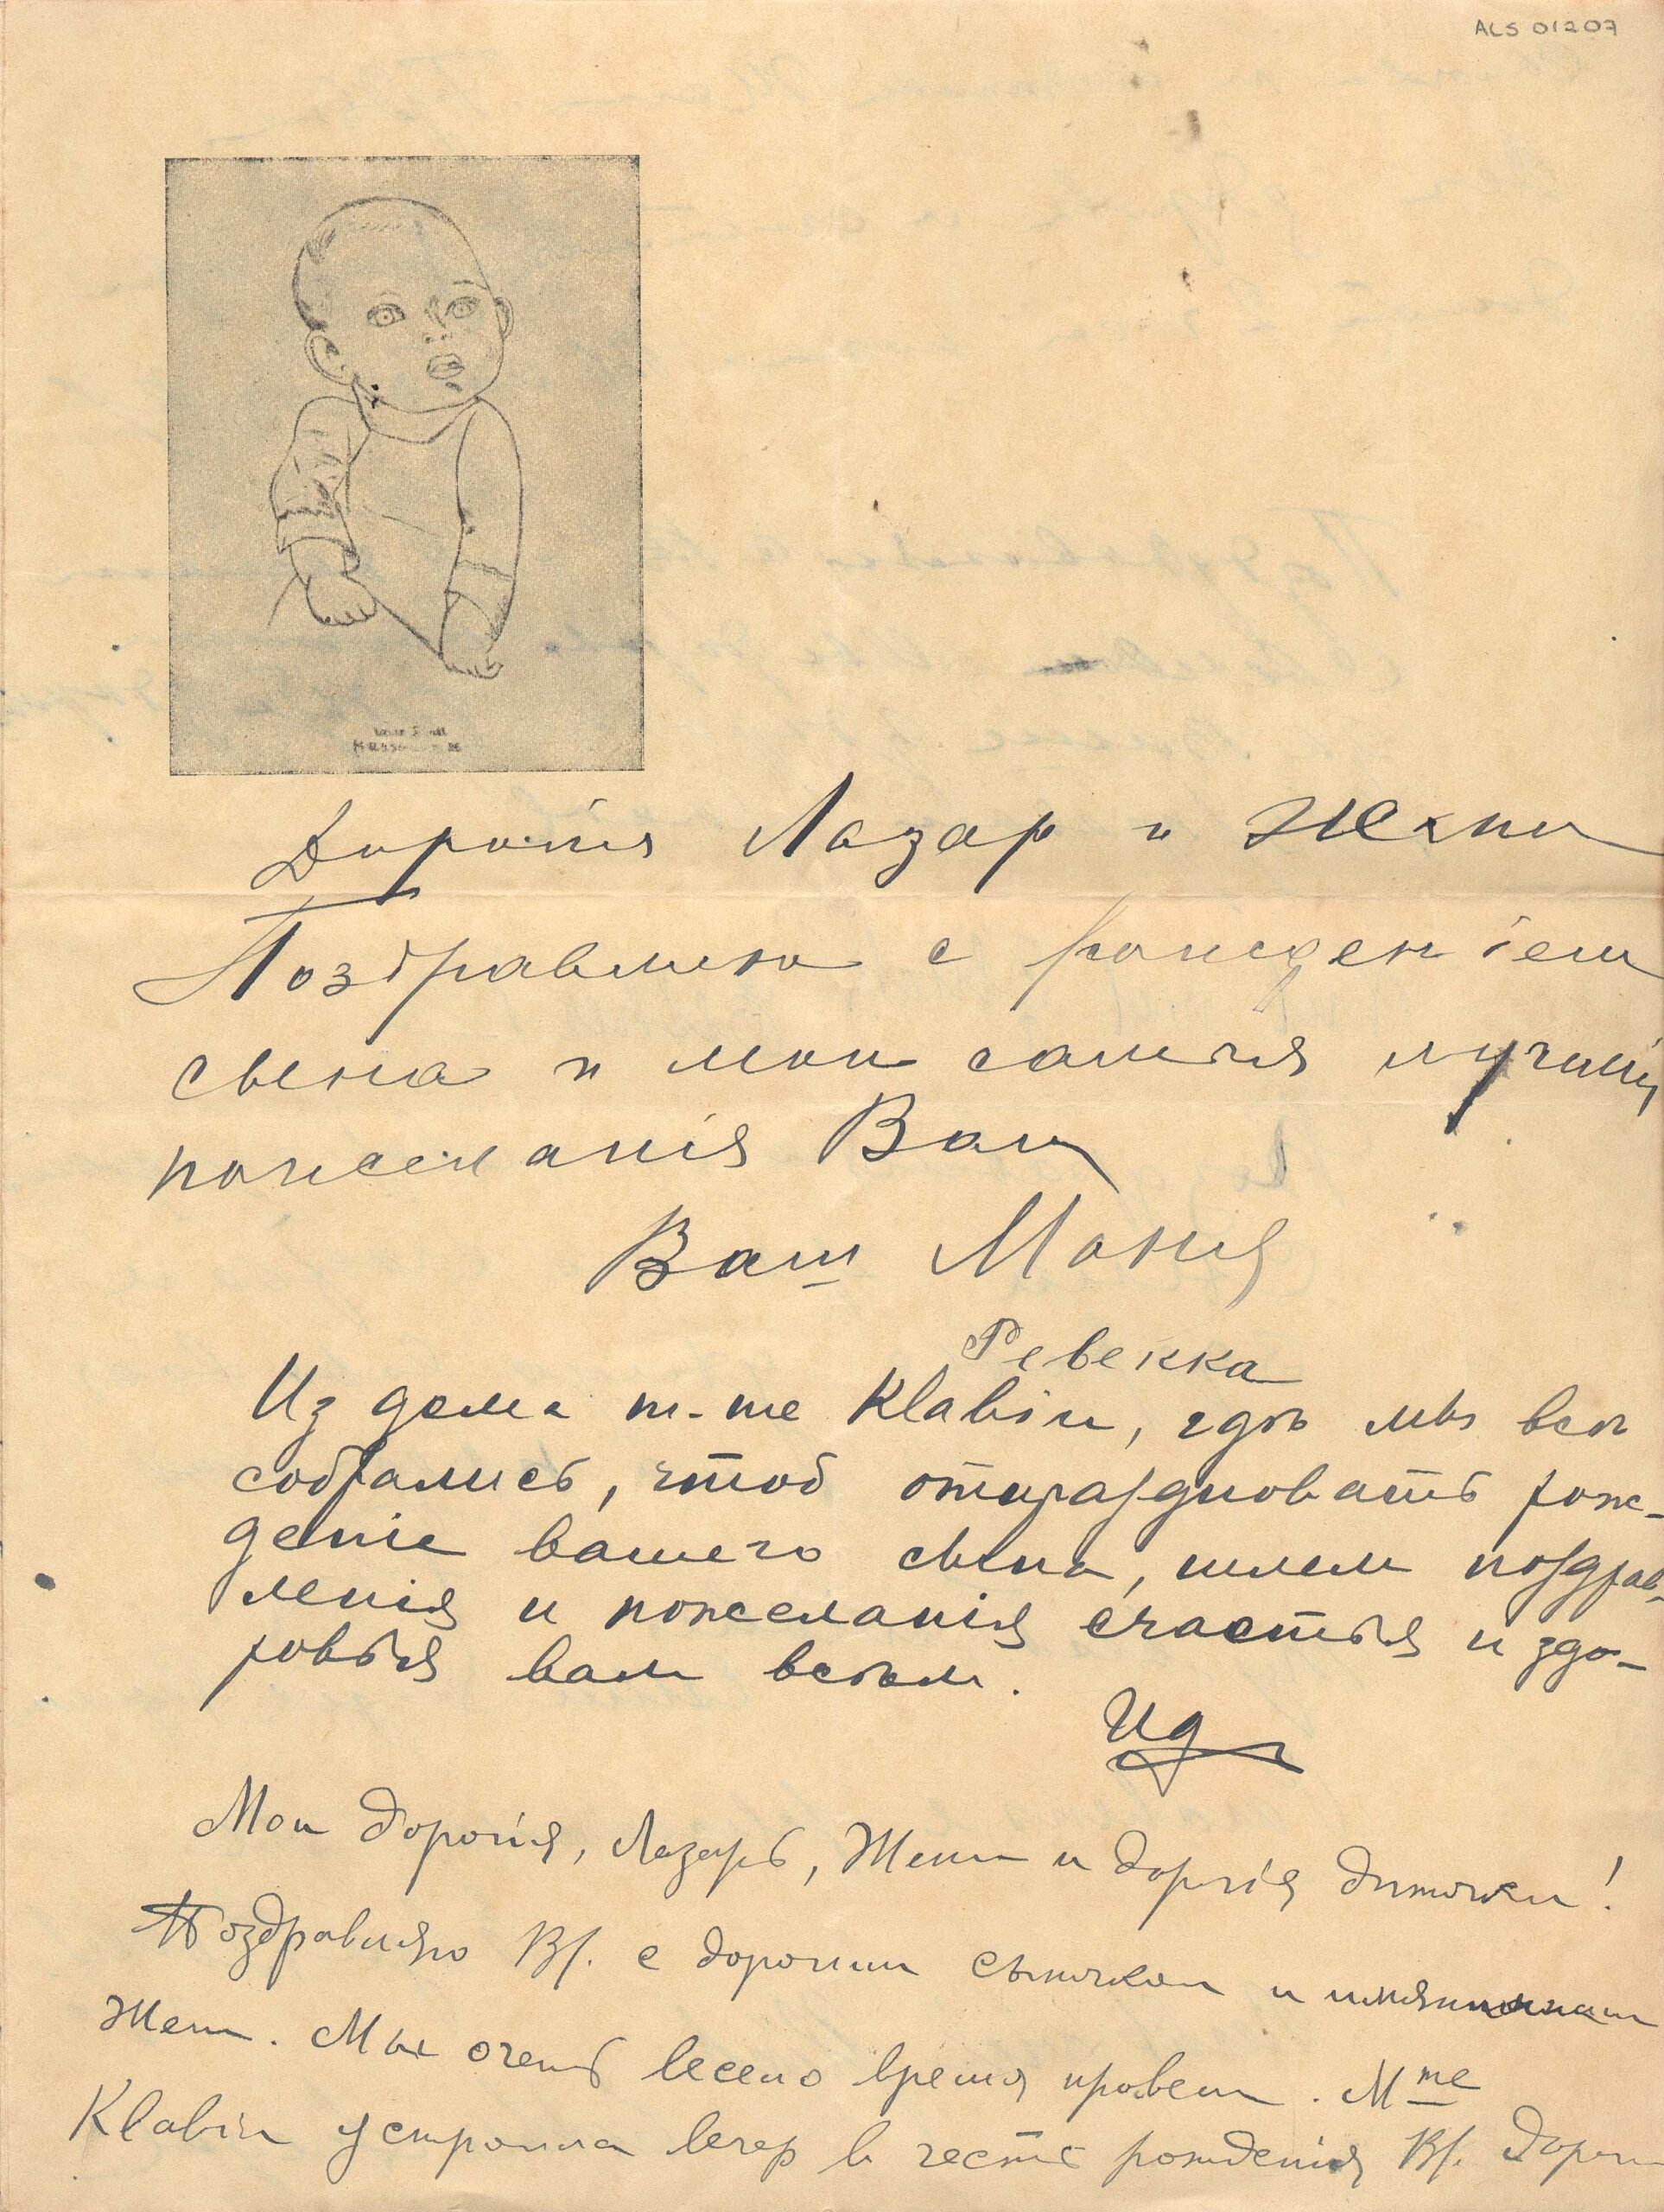 ALS 01207
Дорогія Лазар и Жени
Поздравляю с рожденіем
сына и мои самыя лучшія
пожеланія Вам
Ваш Маня
Ревекка
Из дома m-me Klabin, гдѣ мы всѣ
собрались, чтоб отпраздновать рож-
деніе вашего сына, шлем поздрав-
ленія и пожеланія счастья и здо-
ровья вам всѣм.
Мои дорогія, Лазарь, Жени и дорогія диточки!
Поздравляю Вс. с дорогим сыночком и
Жени. Мы очень весело время провели. Mme
Klabin устроила вечер в честь рожденія Вс. дорог